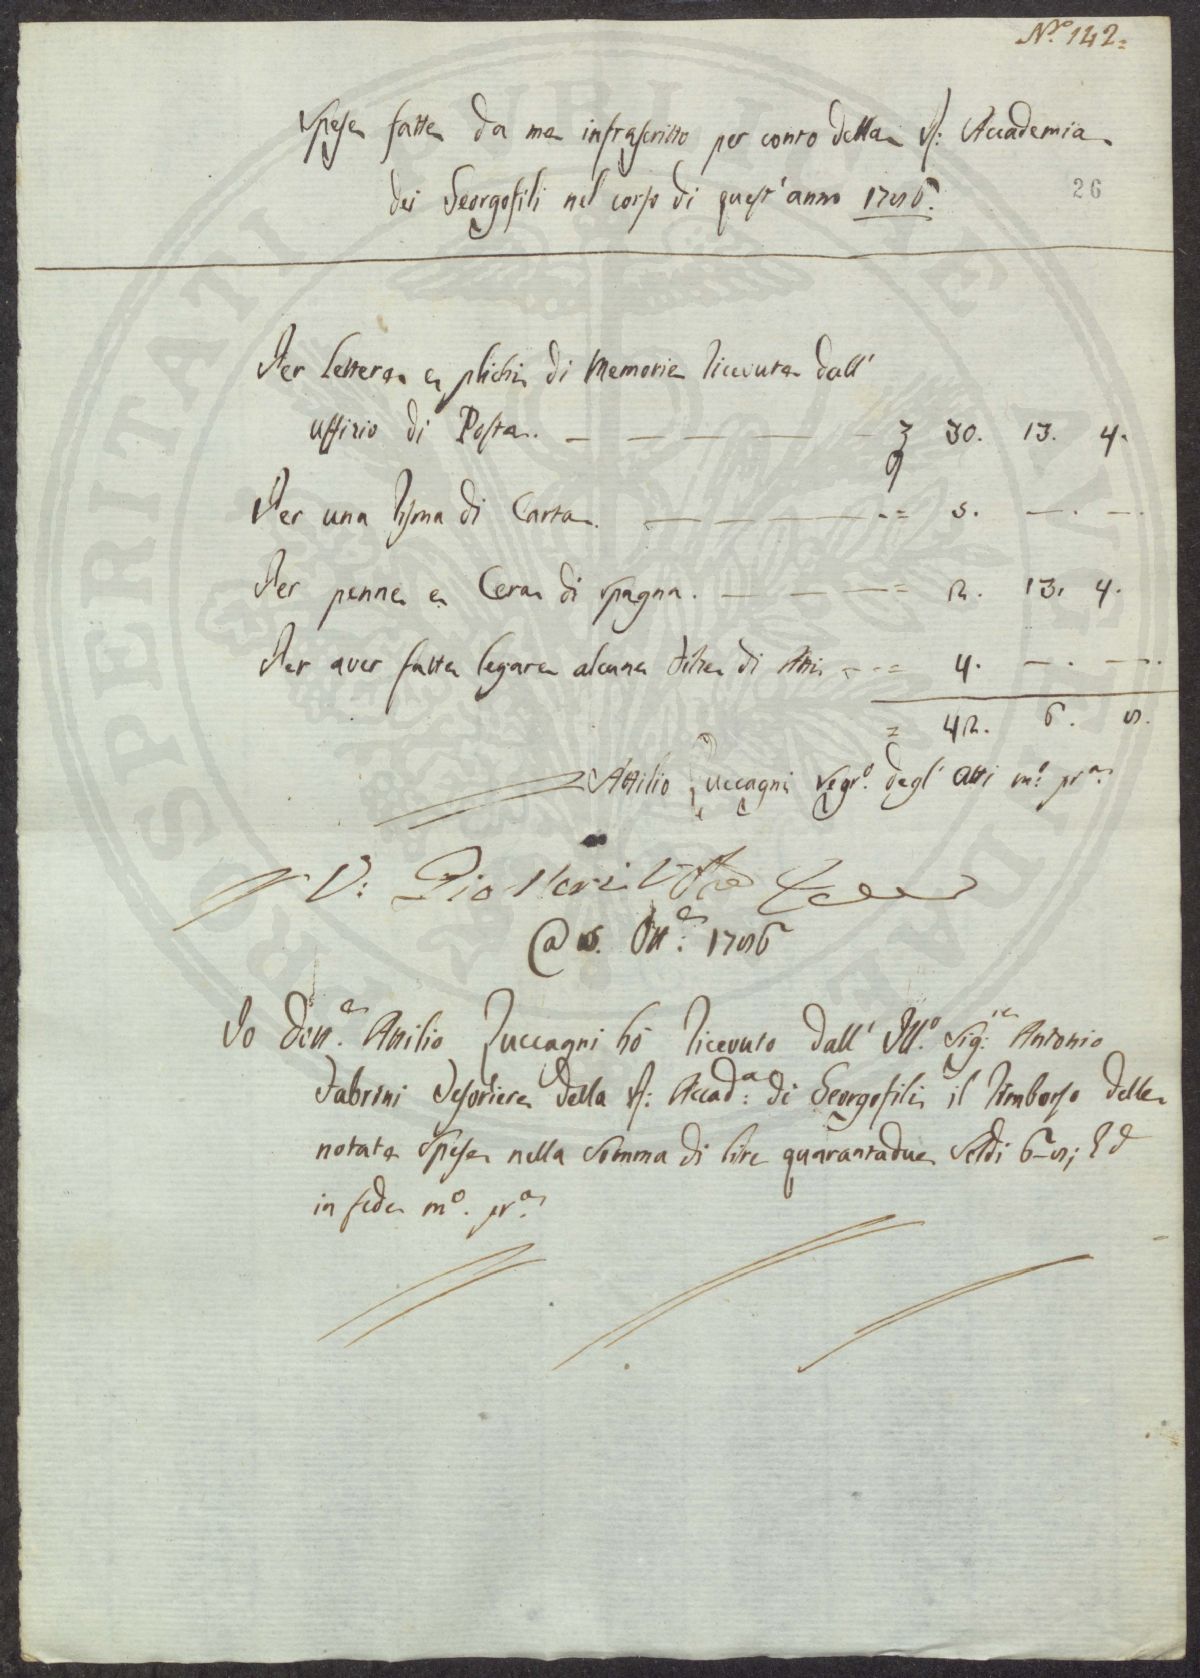 N.º 142=
Spese fatte da me infrascritto per conto della R: Accademia
dei Georgofili nel corso di quest'anno 1786.
26
Per lettere e plichi di Memorie ricevute dall'
uffizio di Posta. — — — — — 30. 13. 4.
Per una risma di Carta. — — — -= 5. —. —.
Per penne e Cera di spagna. — — — -= 2. 13. 4.
Per aver fatte legare alcune Filze di Atti --= 4. —. —.
= 42. 6. 8.
Attilio Zuccagni Segr.º degl'Atti m.º pr.ª
V: Pio
Ott.e 1786
Io Dott.e Attilio Zuccagni hò ricevuto dall'Ill.º Sig.re Antonio
Fabrini Tesoriere della R: Accad.ª di Georgofili il rimborso delle
notate spese nella somma di lire quarantadue soldi 6-8; Ed
in fede m.º pr.ª
PROSPERITATI PVBLICAE AVGENDAE